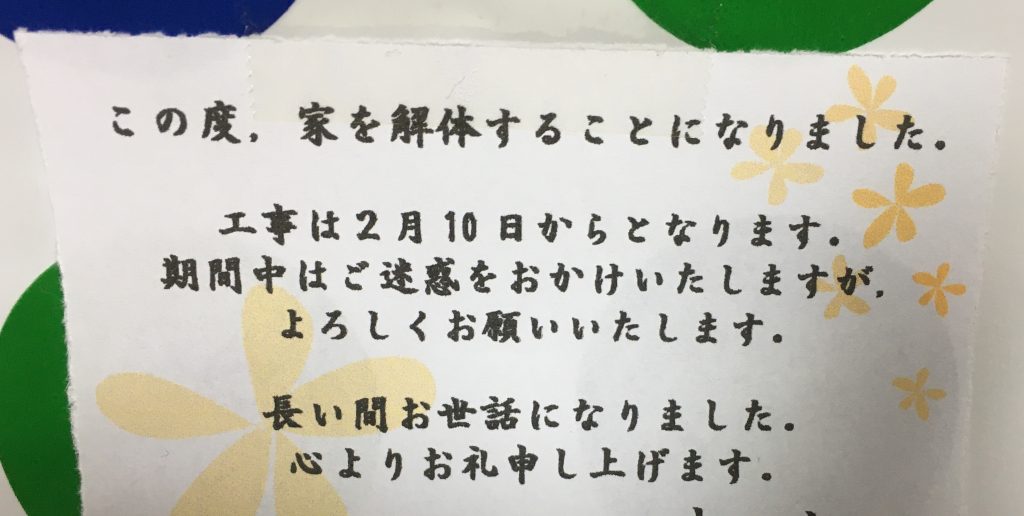 この度，家を解体することになりました。
工事は２月10日からとなります。
期間中はご迷惑をおかけいたしますが，
よろしくお願いいたします。
長い間お世話になりました。
心よりお礼申し上げます。